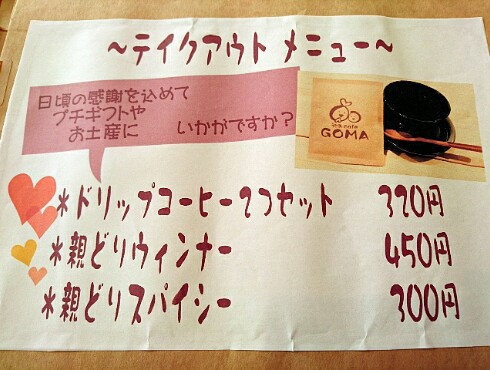 ～テイクアウト メニュー～
日頃の感謝を込めて
プチギフトや
お土産に いかがですか？
GOMA
＊ドリップコーヒー2つセット 320円
＊親どりウィンナー 450円
＊親どりスパイシー 300円